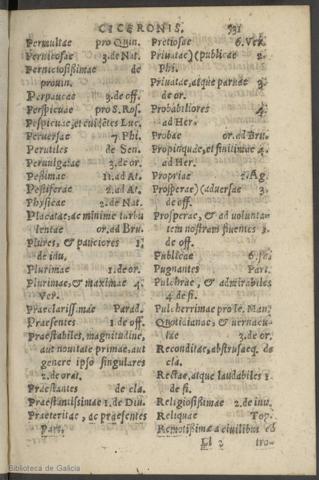 CICERONIS. 531
Permultae pro Quin.
Perniciosae 3. de Nat.
Perniciosißimae de
prouin.
Perpaucae 3. de off.
Perspicuae pro S. Ros.
Perspicuae, et euidẽtes Luc.
Peruersae 7. Phi.
Perutiles de Sen.
Peruulgatae 3. de or.
Peßimae 11. ad At.
Pestiferae 2. ad At.
Physicae 2. de Nat.
Placatae, ac minime turbu
lentae or. ad Bru.
Plures, & pauciores 1.
de idu.
Plurimae 1. de or.
Plurimae, & maximae 4.
Ver.
Praeclariss. mae Parad.
Praesentes 1. de off.
Praestabiles, magnitudine,
aut nouitate primae, aut
genere ipso singulares
2. de orat.
Praestantes de cla.
Praestantissimae 1. de Diu.
Praeteritae, ac praesentes
Part.
Pretiosae 6. Ver.
Priuatae)(publicae 2.
Phi.
Priuatae, atque paruae 3.
de or.
Probabiliores 4.
ad Her.
Probae or. ad Bru.
Propinquae, et finitimae 4.
ad Her.
Propriae 2. Ag.
Prosperae)(aduersae 3.
de off.
Prosperae, & ad volunta
tem nostram fluentes 1.
de off.
Publicae
Pugnantes Part.
Pulchrae, & admirabiles
4. de fi.
Pulcherrimae pro le. Man.
Quotidianae, & uernacu
lae 3. de or.
Reconditae, abstrusaeq. de
cla.
Rectae, atque laudabiles 1.
de fi.
Religiosißimae 2. de inu.
Reliquae Top.
Remotißimae a ciuilibus
Ll 2
Biblioteca de Galicia